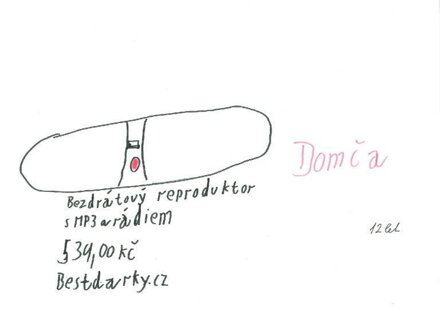 Domča
Bezdrátový reproduktor
s MP3 a rádiem
539,00 kč
Bestdarky.cz
12 let